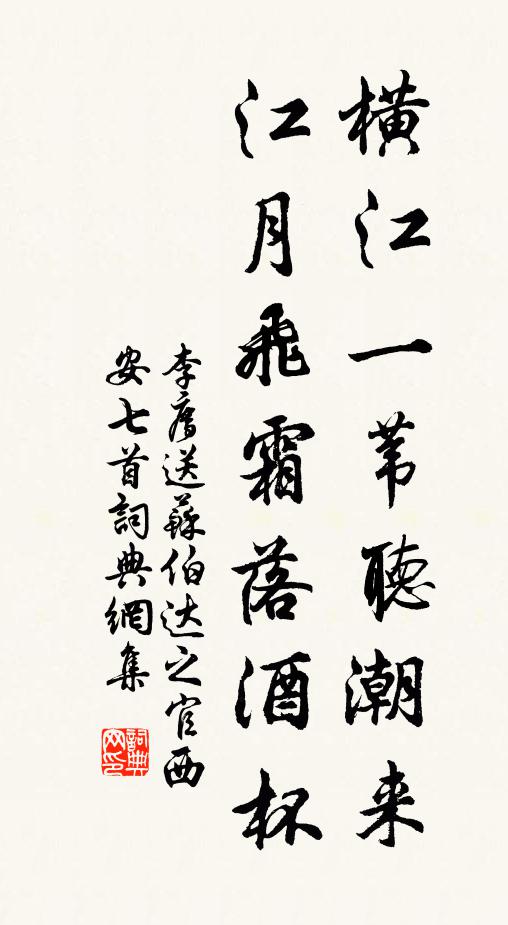 横江一葦聽潮来
江月飛霜落酒杯
李廌送蘇伯达之官西
安七首詞典網集
詞典
网印